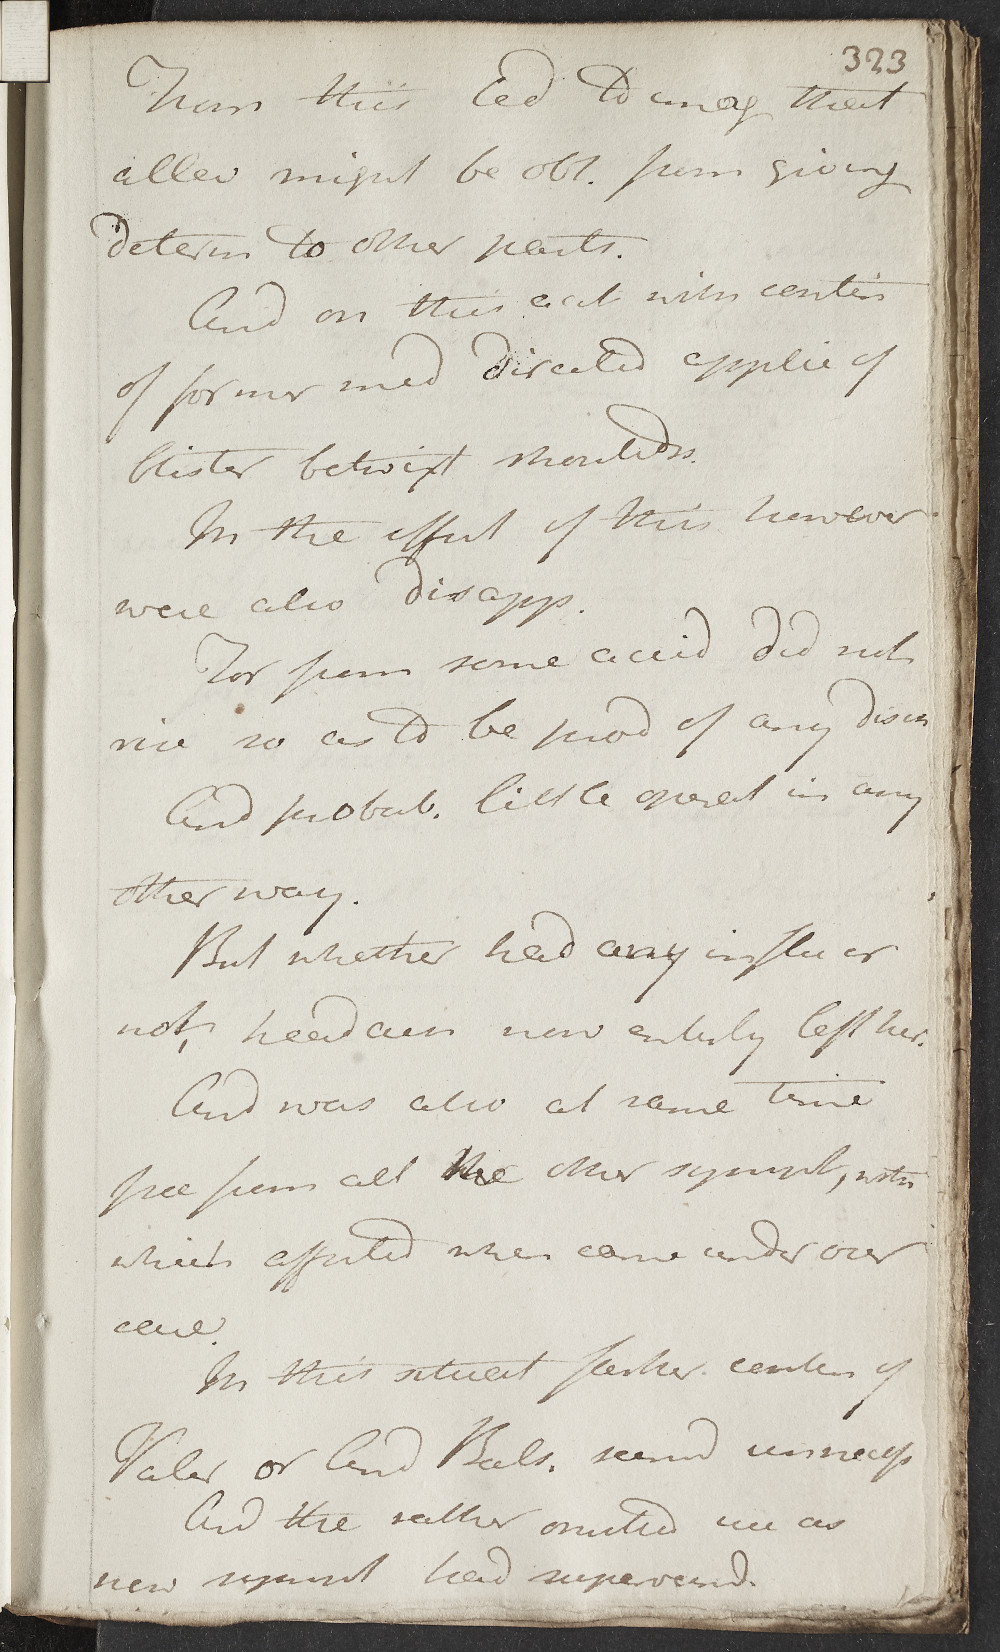 323
From this led to imag that
allev might be obt. from giving
determ to other parts.
And on this acct with contin
of former med directed applic of
blister betwixt shoulders.
In the effect of this however
were also disapp.
For from some accid did not
rise so as to be prod of any disch
And probab. little operat in any
other way.
But whether had any influ or
not, headach now entirely left her.
And was also at same time
free from all the other sympt, with
which affected when came under our
care.
In this situat farther contin of
Valer or Bals. seemd unnecess
And the rather omitted use as
new sympt had supervend.